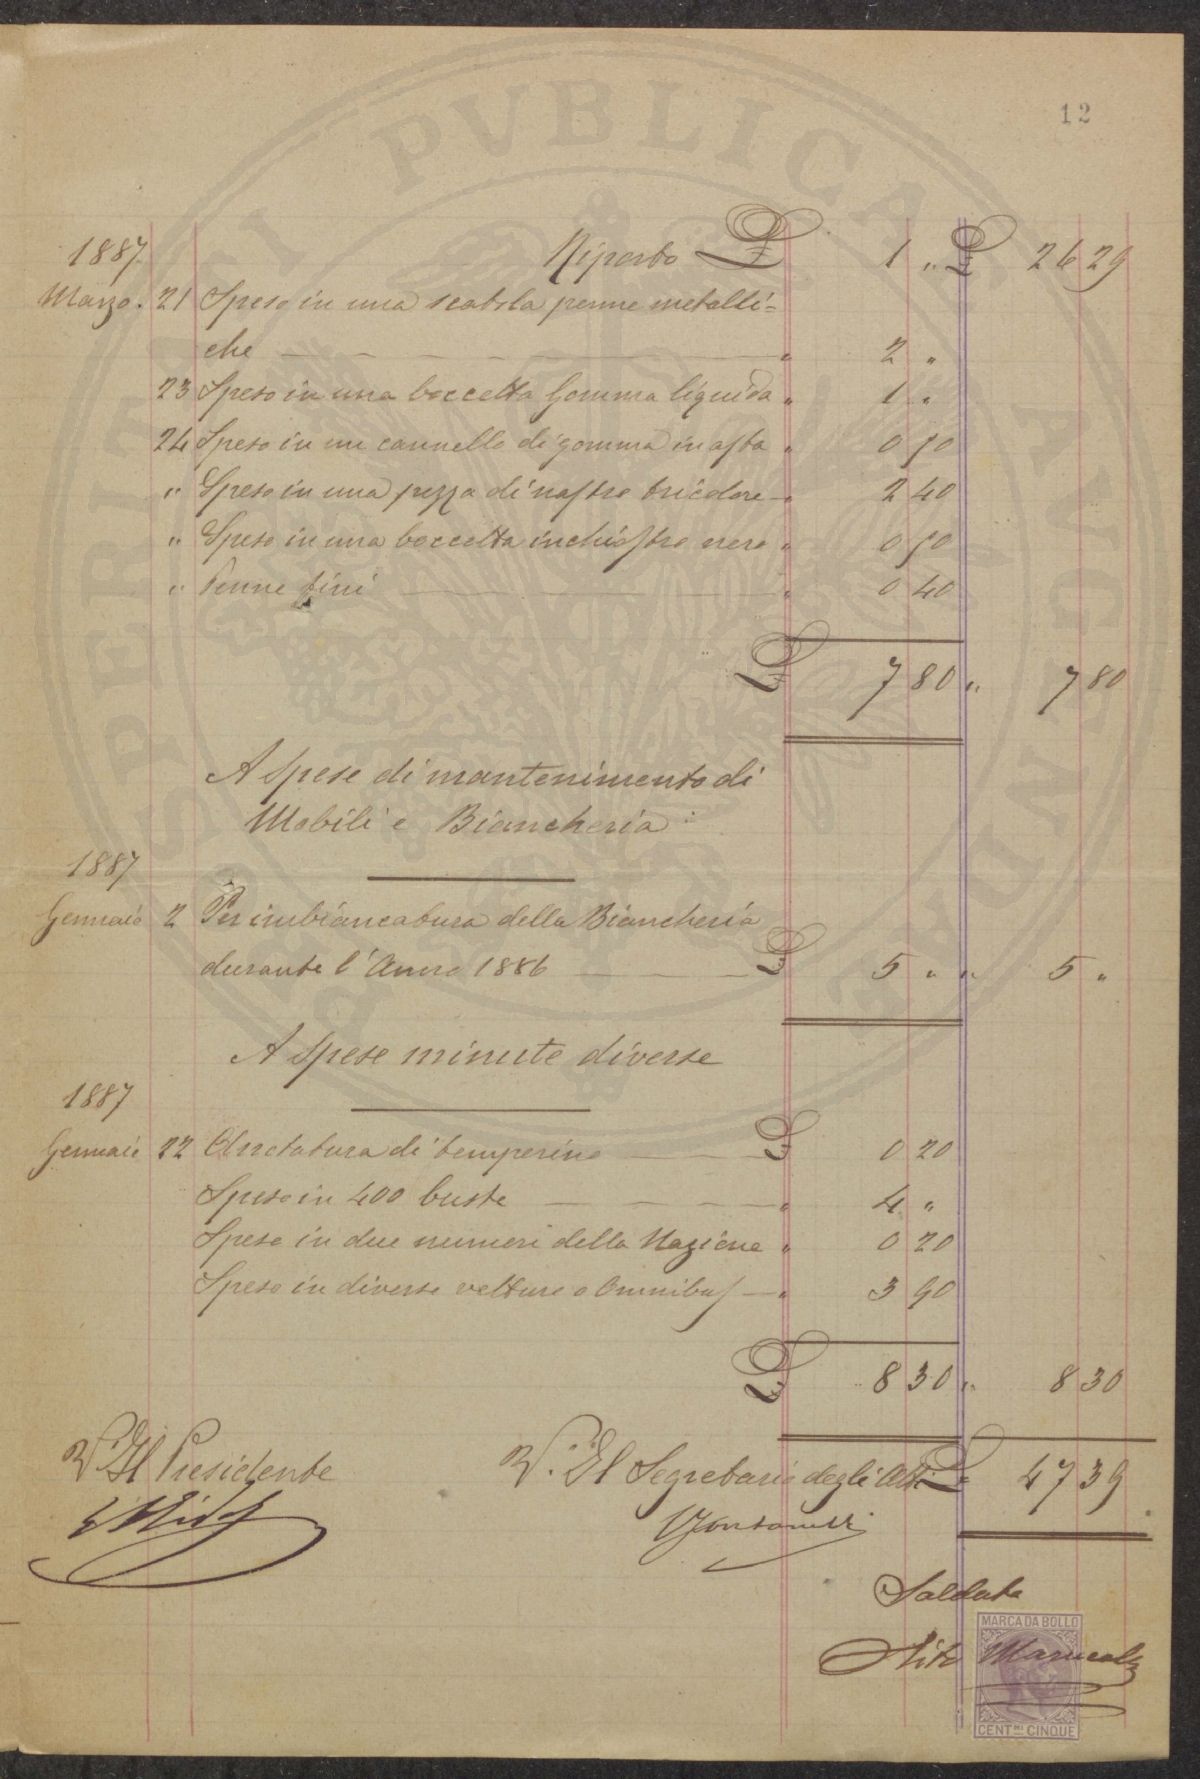 12
1887 Riporto £ 1 " £ 26 29
Marzo. 21 Speso in una scatola penne metalli=
che " 2 "
23 Speso in una boccetta Gomma liquida " 1 "
24 Speso in un cannello di gomma in asta " 0 50
" Speso in una pezza di nastro tricolore " 2 40
" Speso in una boccetta inchiostro nero " 0 50
" Penne fini " 0 40
£ 7 80 " 7 80
A Spese di mantenimento di
Mobili e Biancheria
1887
Gennaio 2 Per imbiancatura della Biancheria
durante l'Anno 1886 £ 5 " " 5 "
A Spese minute diverse
1887
Gennaio 22 Arrotatura di temperino £ 0 20
Speso in 400 buste " 4 "
Speso in due numeri della Nazione " 0 20
Speso in diverse vetture o Omnibus " 3 90
£ 8 30 " 8 30
V. Il Presidente V. Il Segretario degli Atti £ 47 39
Saldato
MARCA DA BOLLO
CENT.MI CINQUE
PUBLICAE